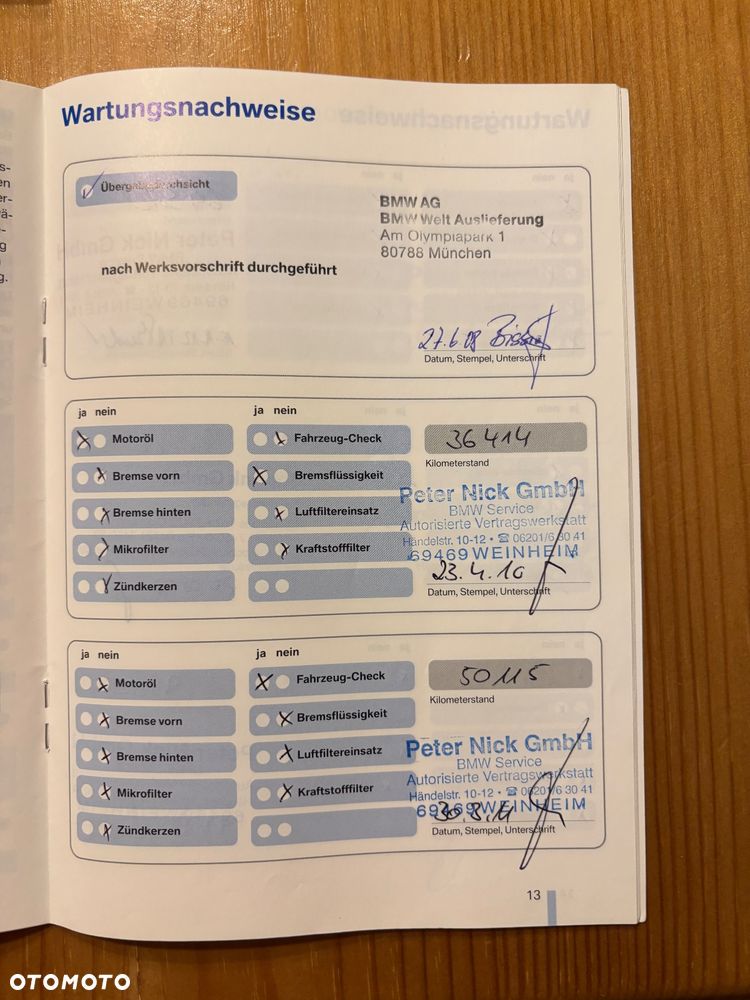 Wartungsnachweise
s-
en
er-
ä-
-
g
g.
Übergabedurchsicht
BMW AG
BMW Welt Auslieferung
Am Olympiapark 1
80788 München
nach Werksvorschrift durchgeführt
27.6.08
Datum, Stempel, Unterschrift
ja nein
ja nein
Motoröl
Fahrzeug-Check
36414
Kilometerstand
Bremse vorn
Bremsflüssigkeit
Bremse hinten
Luftfiltereinsatz
Mikrofilter
Kraftstofffilter
Zündkerzen
Peter Nick GmbH
BMW Service
Autorisierte Vertragswerkstatt
Händelstr. 10-12 • ☎ 06201/6 30 41
69469 WEINHEIM
23.4.10
Datum, Stempel, Unterschrift
ja nein
ja nein
Motoröl
Fahrzeug-Check
50115
Kilometerstand
Bremse vorn
Bremsflüssigkeit
Bremse hinten
Luftfiltereinsatz
Mikrofilter
Kraftstofffilter
Zündkerzen
Peter Nick GmbH
BMW Service
Autorisierte Vertragswerkstatt
Händelstr. 10-12 • ☎ 06201/6 30 41
69469 WEINHEIM
Datum, Stempel, Unterschrift
13
OTOMOTO